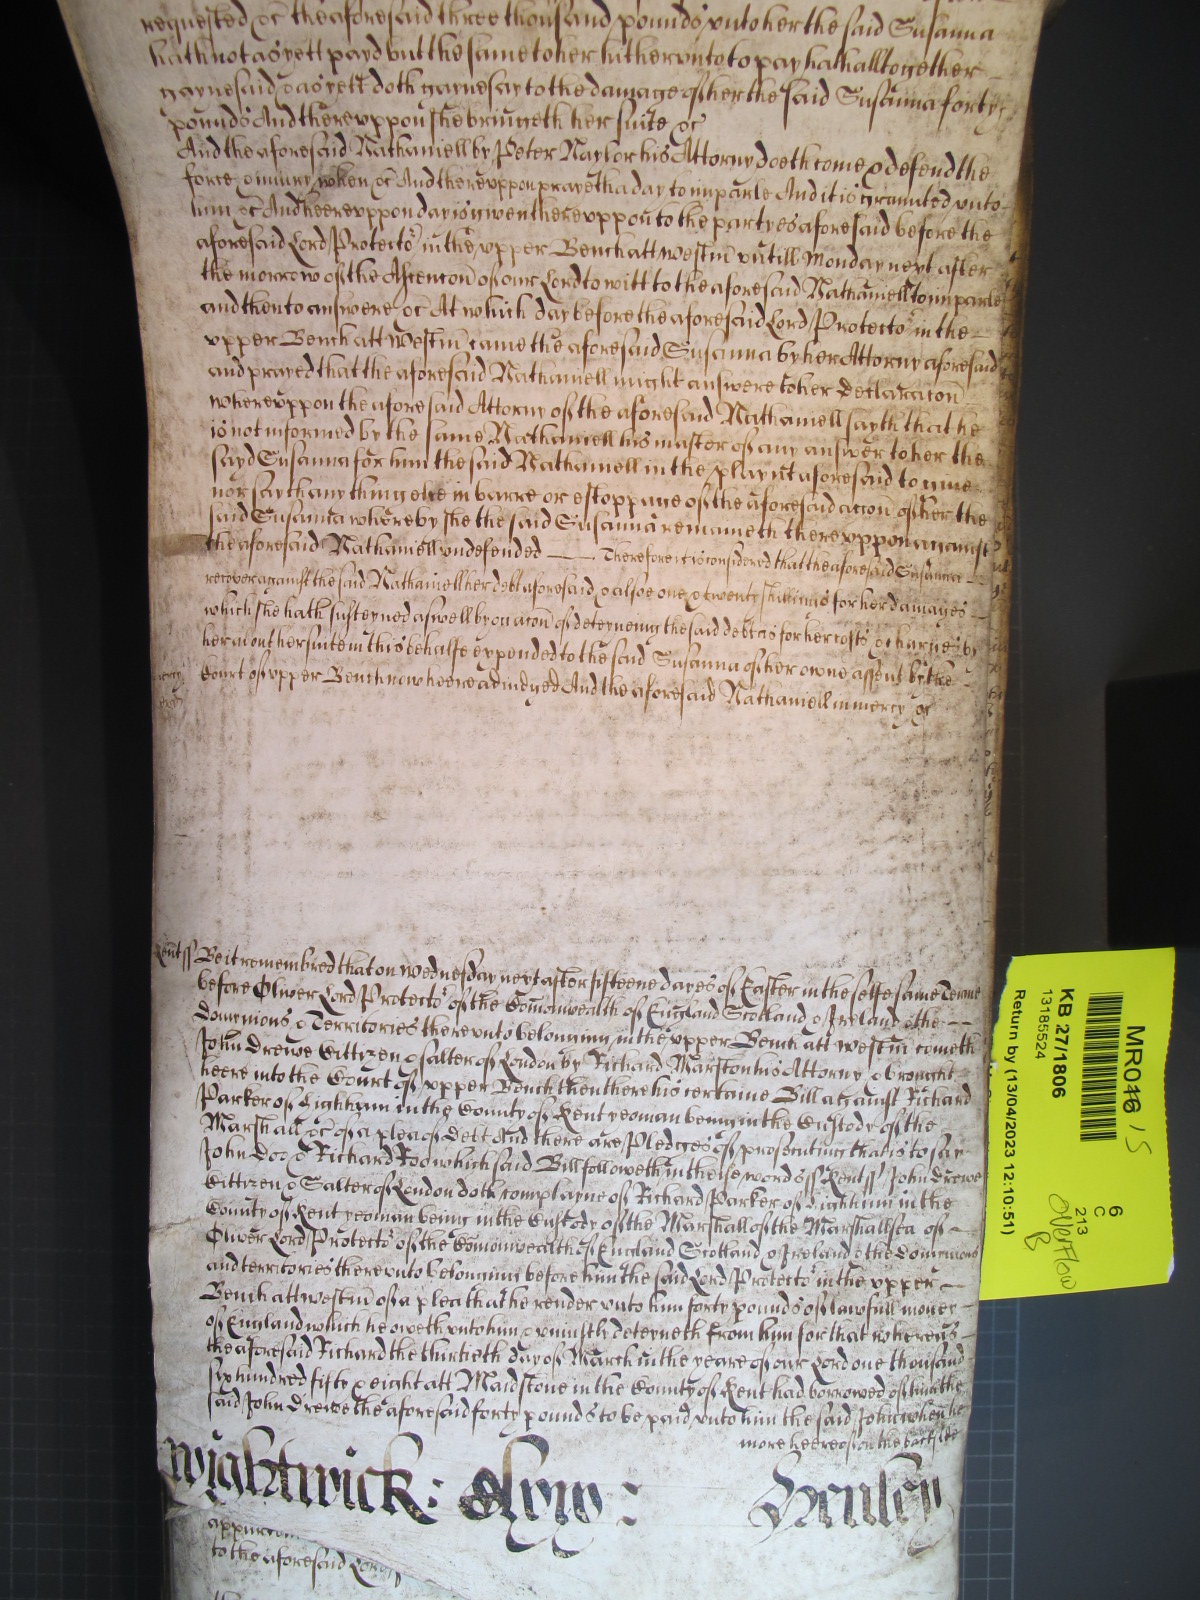 requested &c the aforesaid three thousand pounds vnto her the said Susanna
hath not as yett payd but the same to her hitherunto to pay hath alltogether
gaynesaid & as yett doth gaynesay to the damage of her the said Susanna forty
pounds And therevppon she bringeth her suite &c
And the aforesaid Nathaniell by Peter Naylor his Attorny doeth come & defend the
force & iniury when &c And therevppon prayeth a day to imparle And it is graunted vnto
him &c And heerevppon day is given therevppon to the partyes aforesaid before the
aforesaid Lord Protector in the vpper Bench att Westm vntill Monday next after
the morrow of the Ascencon of our Lord to witt to the aforesaid Nathaniell to imparle
and then to answere &c At which day before the aforesaid Lord Protector in the
vpper Bench att Westm came the aforesaid Susanna by her Attorny aforesaid
and prayed that the aforesaid Nathaniell might answere to her declaracon
wherevppon the aforesaid Attorny of the aforesaid Nathaniell sayth that he
is not informed by the same Nathaniell his master of any answer to her the
sayd Susanna for him the said Nathaniell in the play nt aforesaid to give
nor sayth any thing else in barre or estoppage of the aforesaid accon of her the
said Susanna whereby she the said Susanna remaineth therevppon against
the aforesaid Nathaniell vndefended Therefore it is considered that the aforesaid Susanna
recover against the said Nathaniell her debt aforesaid & alsoe one & twenty shillings for her damages
which she hath susteyned aswell by occacon of deteyneing the said debt as for her costs & charges by
her about her suite in this behalfe expended to the said Susanna of her owne assent by the
Court of vpper Bench now heere adiudged And the aforesaid Nathaniell in mercy &c
mercy
Kent ss Be it remembred that on Wednesday next after fifteene dayes of Easter in the selfe same Terme
before Oliver Lord Protector of the Comonwealth of England Scotland & Ireland & the
Dominions & Territories therevnto belonging in the vpper Bench att Westm cometh
John Drewe Cittizen & salter of London by Richard Marston his Attorny & brought
heere into the Court of vpper Bench then there his certaine Bill against Richard
Parker of Lighham in the County of Kent yeoman being in the Custody of the
Marshall &c of a plea of debt And there are Pledges of prosecuting that is to say
John Doo & Richard Roo which said Bill followeth in theise words ss Kent ss John Drewe
Cittizen & Salter of London doth complayne of Richard Parker of Lighham in the
County of Kent yeoman being in the Custody of the Marshall of the Marshallsea of
Oliver Lord Protector of the Comonwealth of England Scotland & Ireland & the Dominions
and territories therevnto belonging before him the said Lord Protector in the vpper
Bench att Westm of a plea that he render vnto him forty pounds of lawfull money
of England which he oweth vnto him & vniustly deteyneth from him for that whereas
the aforesaid Richard the thirtieth day of March in the yeare of our Lord one thousand
six hundred fifty & eight att Maidstone in the County of Kent had borrowed of him the
said John Drewe the aforesaid forty pounds to be payd vnto him the said John when he
more heereof on the backside
Wightwick: Henley
to the aforesaid Lord
MR046 15
KB 27/1806
13185524
Return by (13/04/2023 12:10:51)
6
C
213
overflow
B